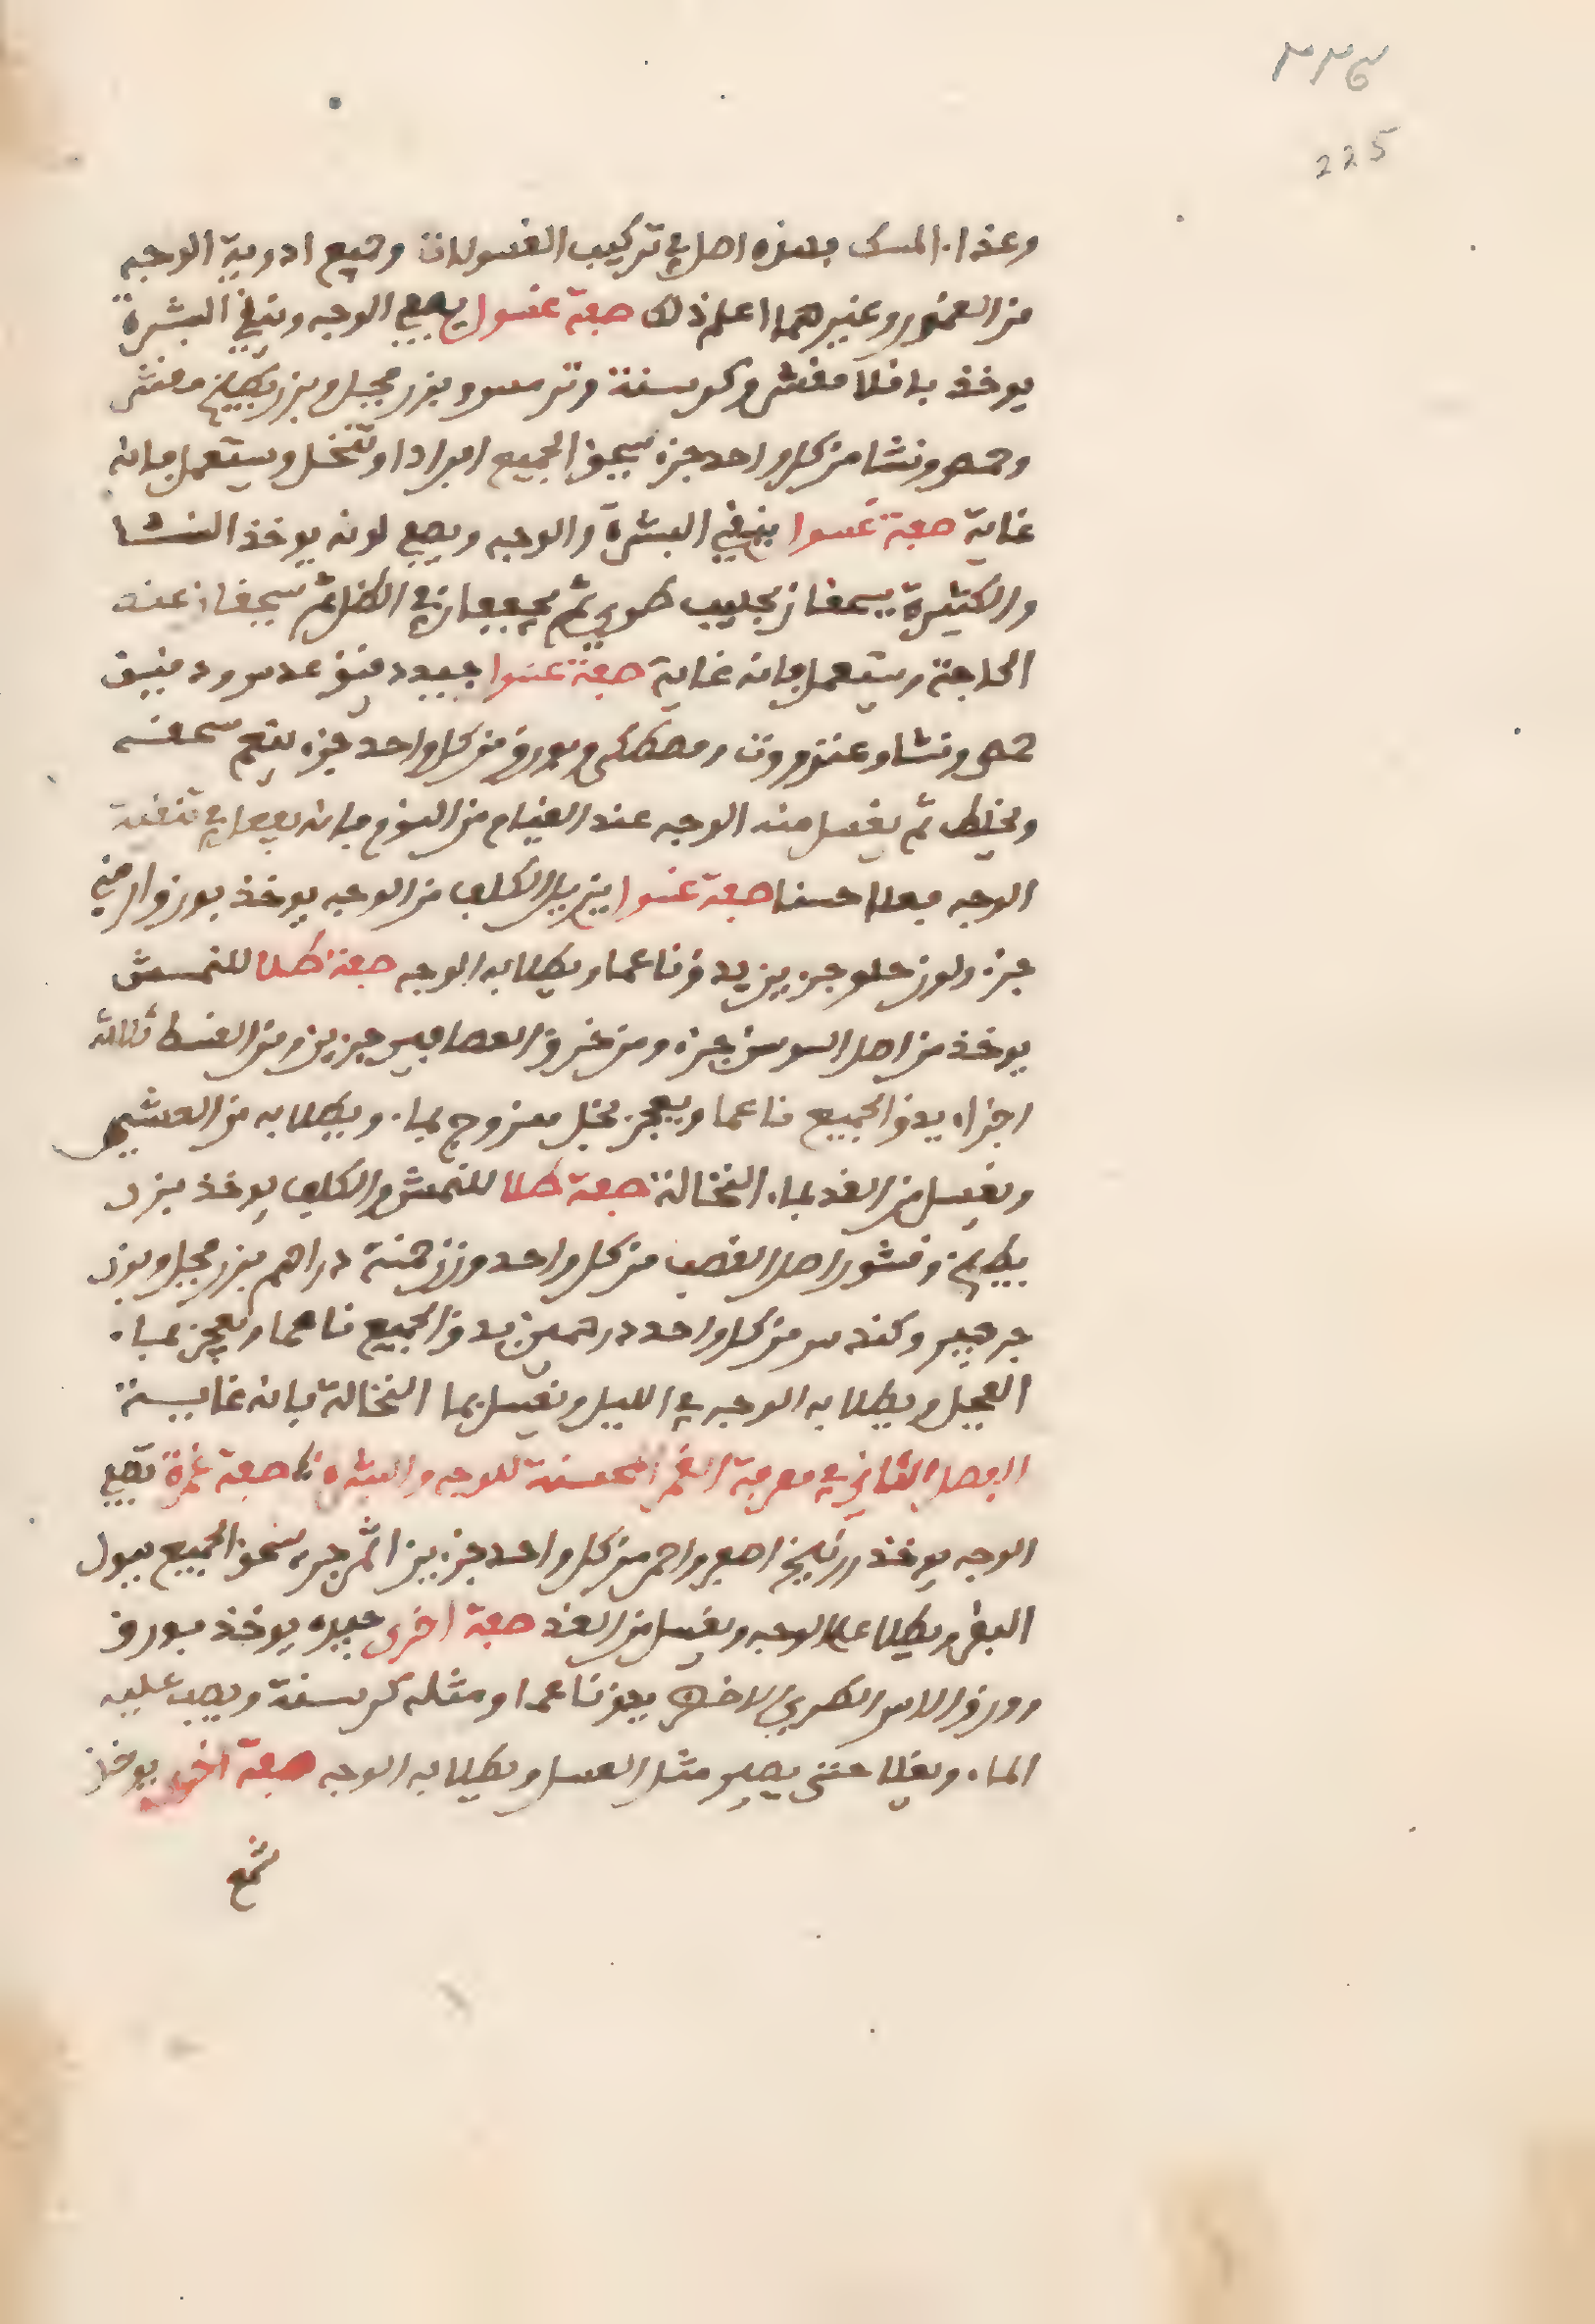 ٢٢٥
225
وغذا. المسك بهذه اصل في تركيب الغسولات وجميع ادوية الوجه
من الغمور وغيرهما اعلم ذلك صفة غسول يصفي الوجه وينقي البشرة
يوخذ باقلا مقشر وكرسنة وترمس وبزر فجل وبزر بطيخ مقشر
وحمص ونشا من كل واحد جزء يسحق الجميع افرادا وتنخل ويستعمل فانه
غاية صفة غسول ينقي البشرة والوجه ويصفي لونه يوخذ النشا
والكثيرة يسحقان بحليب طري ثم يجففان في الظل ثم يسحقان عند
الحاجة ويستعمل فانه غاية صفة غسول جيد دقيق عدس ودقيق
حمص ونشا وعنزروت ومصطكى وبورق من كل واحد جزء ينعم سحقه
ويخلط ثم يغسل منه الوجه عند القيام من النوم فانه يفعل في تنقية
الوجه فعلا حسنا صفة غسول يزيل الكلف من الوجه يوخذ بورق ارمني
جزء ولوز حلو جزيين يدق ناعما ويطلا به الوجه صفة طلا للنمش
يوخذ من اصل السوسن جزء ومن خرو العصافير جزيين ومن القسط ثلاثة
اجزاء يدق الجميع ناعما ويعجن بخل ممزوج بماء ويطلا به من العشي
ويغسل من الغد بماء النخالة صفة طلا للنمش والكلف يوخذ بزر
بطيخ وقشور اصل القصب من كل واحد وزن خمسة دراهم بزر فجل وبزر
جرجير وكندس من كل واحد درهمين يدق الجميع ناعما ويعجن بماء
الفجل ويطلا به الوجه في الليل ويغسل بما النخالة فانه غاية
الفصل الثاني في معرفة الغمر المحسنة للوجه والبشرة صفة غمرة تصفي
الوجه يوخذ زرنيخ اصفر واحمر من كل واحد جزء بزر الجرجر يسحق الجميع ببول
البقر ويطلا على الوجه ويغسل من الغد صفة اخرى جيدة يوخذ بورق
وورق الاس الطري الاخضر يدق ناعما ومثله كرسنة ويصب عليه
الماء ويغلا حتى يصير مثل العسل ويطلا به الوجه صفة اخرى يوخذ
شمع